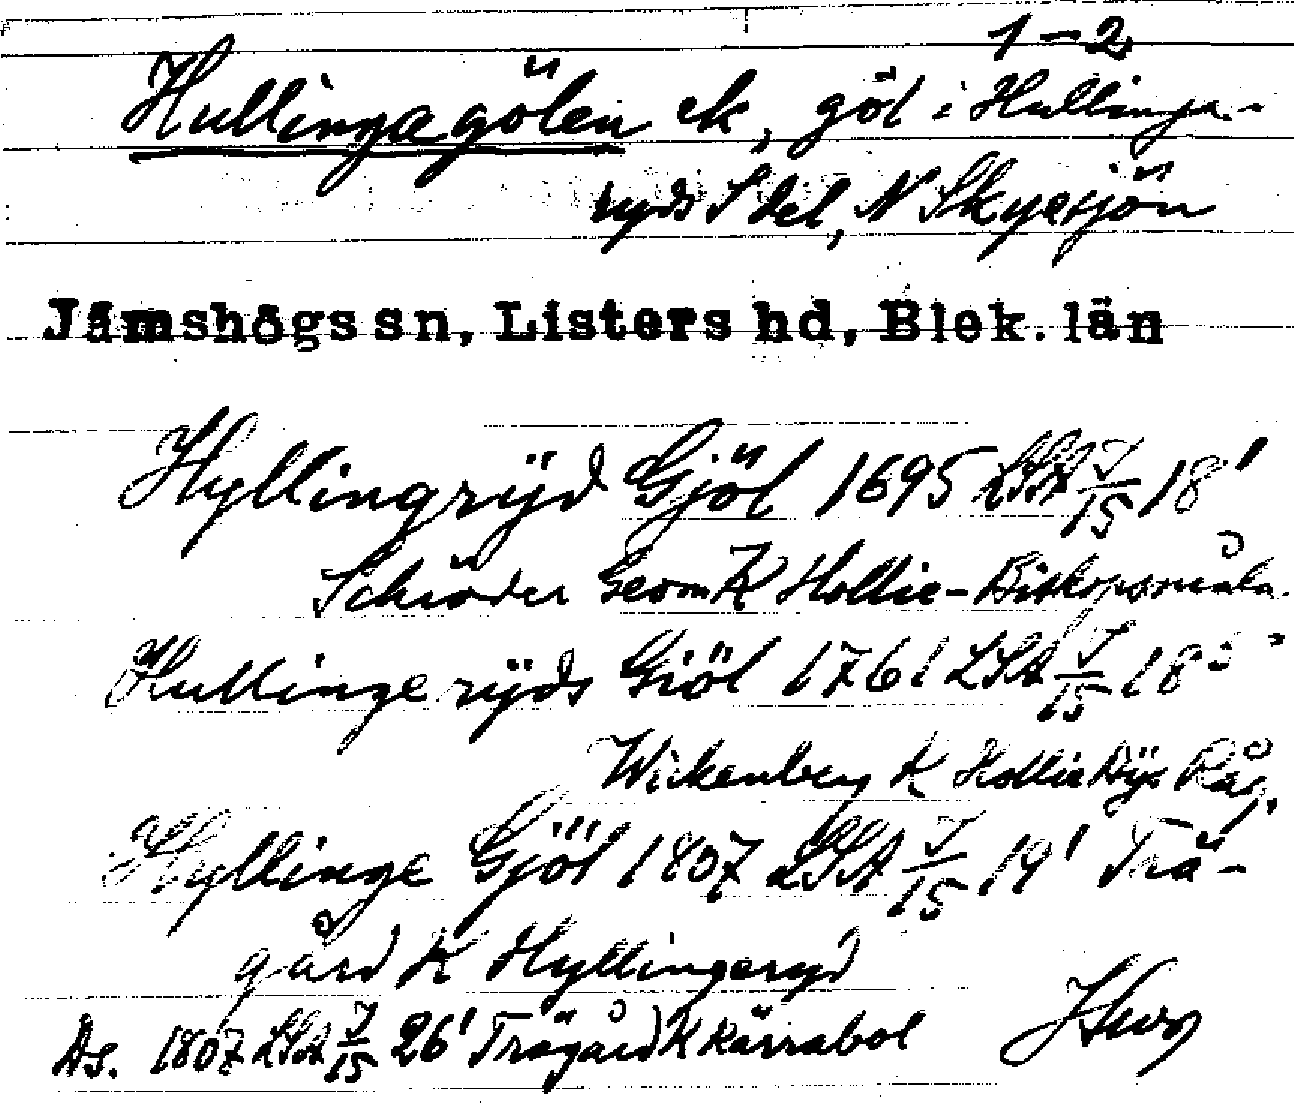 1–2
Hullingagölen ek, göl i Hullinga-
ryds S del, N Skyesjön
Jämshögs sn, Listers hd, Blek. län
Hyllingrÿd Gjöl 1695 LSA J/15 18¹
Schröder Geom K Hollie-Biskopsmåla.
Hullinge rÿds Giöl 1761 LSA J/15 18
Wickenberg K Hollie Dÿs Råg.
Hyllinge Gjöl 1807 LSA J/15 19¹ Trä-
gård K Hyllingeryd
Ds. 1807 LSA J/15 26¹ Trägård K Kärrabol